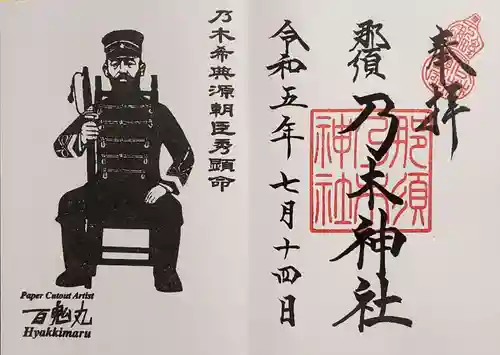 奉拝
那須
乃木神社
那須
乃木
神社
令和五年七月十四日
乃木希典源朝臣秀顕命
Paper Cutout Artist
百鬼丸
Hyakkimaru